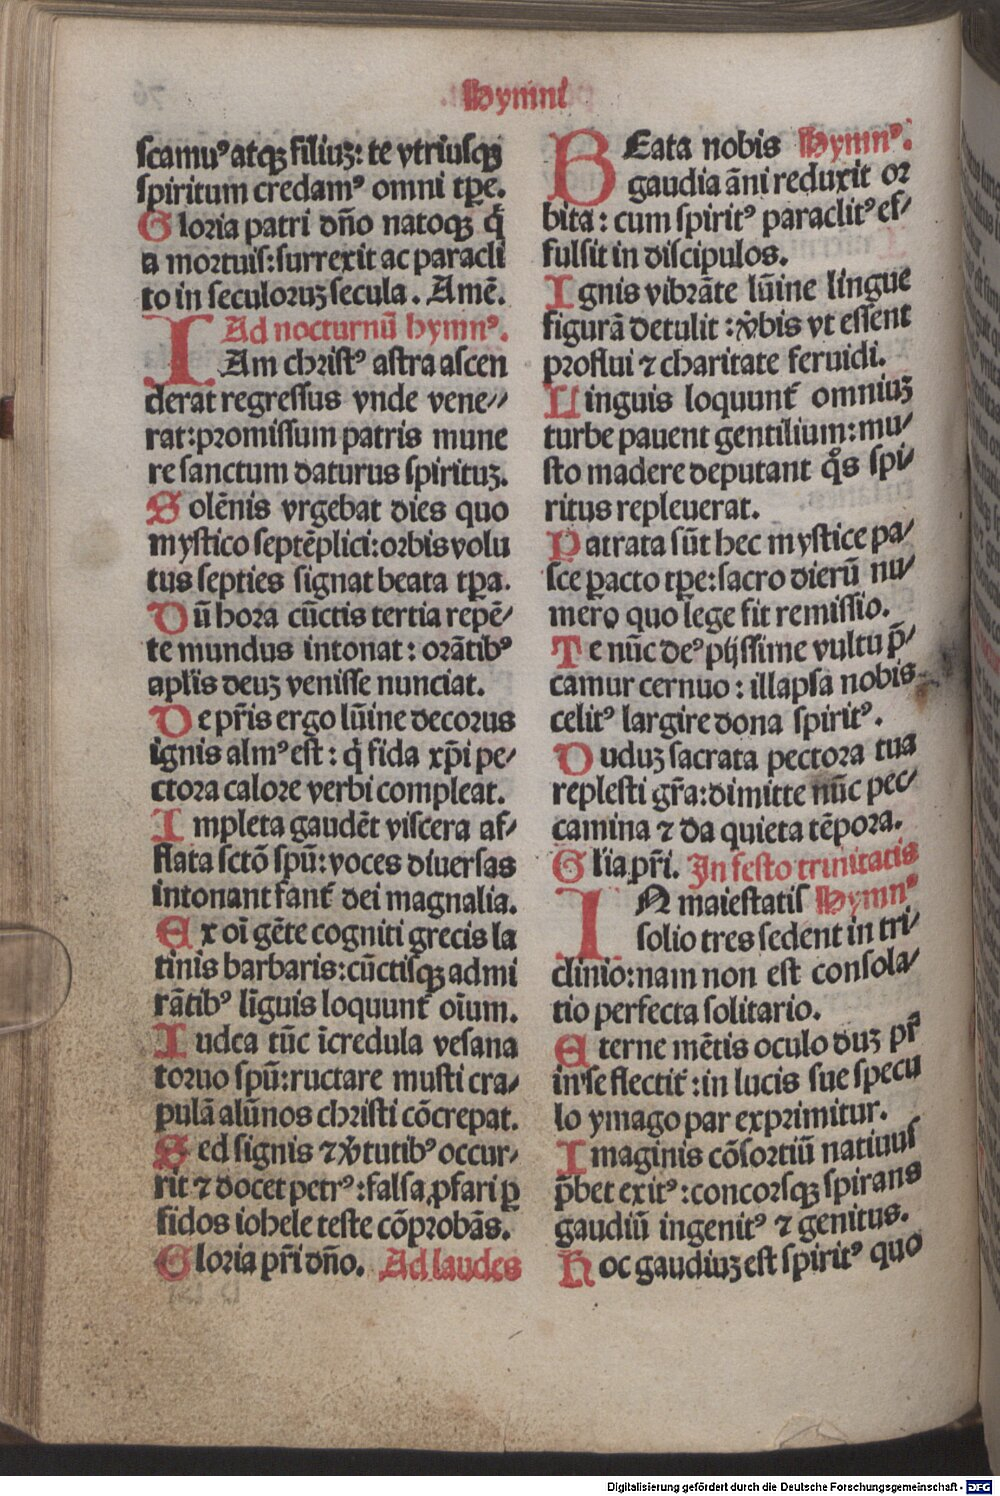 Hymni
scamuꝰ atqꝫ filiuꝫ: te vtriusqꝫ
spiritum credamꝰ omni tꝑe.
Gloria patri dño natoqꝫ q̇
a mortuis: surrexit ac paracli
to in seculoruꝫ secula. Amē.
Ad nocturnū hymnꝰ.
IAm christꝰ astra ascen
derat regressus vnde vene⸗
rat: promissum patris mune
re sanctum daturus spirituꝫ.
Solēnis vrgebat dies quo
mystico septēplici: orbis volu
tus septies signat beata tꝑa.
Dū hora cūctis tertia repē⸗
te mundus intonat: orātibꝰ
apl̄is deuꝫ venisse nunciat.
De pr̄is ergo lūine decorus
ignis almꝰ est: q̇ fida xp̄i pe⸗
ctora calore verbi compleat.
Impleta gaudēt viscera af⸗
flata sctō spū: voces diuersas
intonant fant̄ dei magnalia.
Ex oī gēte cogniti grecis la
tinis barbaris: cūctisqꝫ admi
rātibꝰ līguis loquunt̄ oīum.
Iudea tūc īcredula vesana
toruo spū: ructare musti cra⸗
pulā alūnos christi cōcrepat.
Sed signis ⁊ v̓tutibꝰ occur⸗
rit ⁊ docet petrꝰ: falsa ꝓfari ꝑ
fidos iohele teste cōprobās.
Gloria pr̄i dño. Ad laudes
BEata nobis Hymnꝰ.
gaudia āni reduxit or
bita: cum spiritꝰ paraclitꝰ ef⸗
fulsit in discipulos.
Ignis vibrāte lūine lingue
figurā detulit: v̓bis vt essent
proflui ⁊ charitate feruidi.
Linguis loquunt̄ omniuꝫ
turbe pauent gentilium: mu⸗
sto madere deputant qͦs spi⸗
ritus repleuerat.
Patrata sūt hec mystice pa⸗
sce ꝑacto tꝑe: sacro dierū nu⸗
mero quo lege fit remissio.
Te nūc deꝰ pijssime vultu p̄⸗
camur cernuo: illapsa nobis
celitꝰ largire dona spiritꝰ.
Duduꝫ sacrata pectora tua
replesti gr̄a: dimitte nūc pec⸗
camina ⁊ da quieta tēpora.
Gl̄ia pr̄i. In festo trinitatis
IN maiestatis Hymnꝰ
solio tres sedent in tri⸗
clinio: nam non est consola⸗
tio perfecta solitario.
Eterne mētis oculo duꝫ pr̄
in se flectit̄: in lucis sue specu
lo ymago par exprimitur.
Imaginis cōsortiū natiuus
p̄bet exitꝰ: concorsqꝫ spirans
gaudiū ingenitꝰ ⁊ genitus.
Hoc gaudiuꝫ est spiritꝰ quo
Digitalisierung gefördert durch die Deutsche Forschungsgemeinschaft - DFG